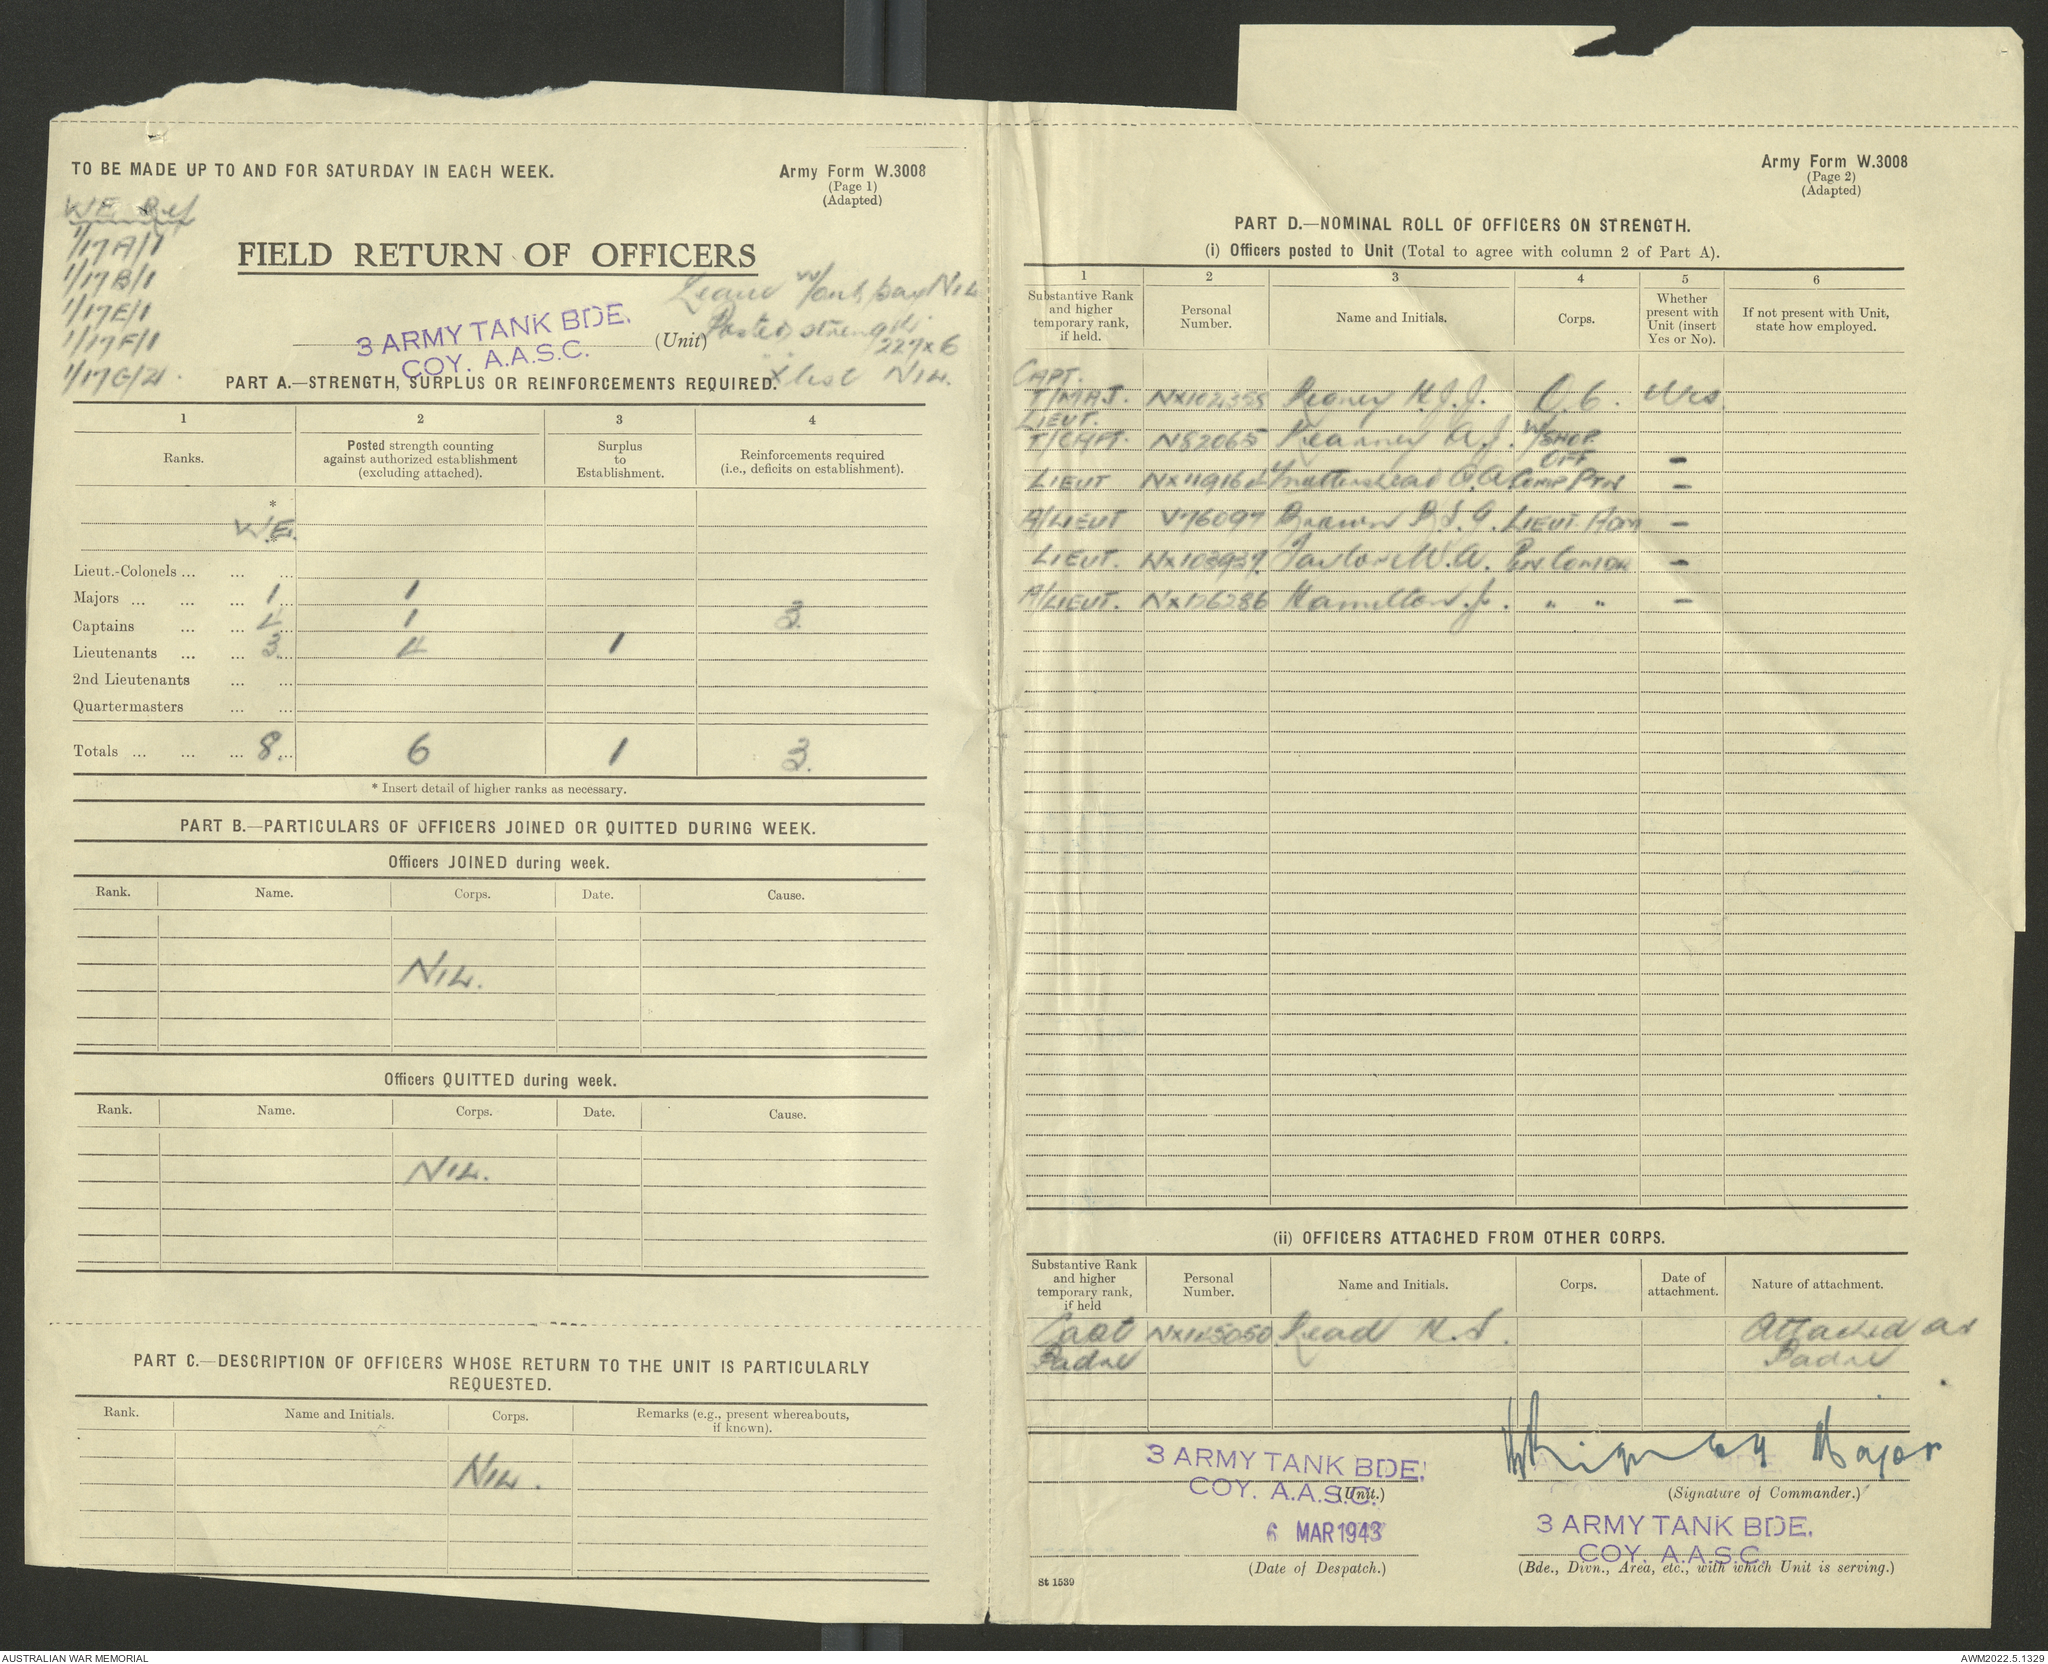 TO BE MADE UP TO AND FOR SATURDAY IN EACH WEEK.
Army Form W.3008
(Page 1)
(Adapted)
WE Ref
1/17A/1
1/17B/1
1/17E/1
1/17F/1
1/17G/21.
FIELD RETURN OF OFFICERS
Leave W/out pay NIL
Posted strength
227 x 6
X list NIL.
3 ARMY TANK BDE.
COY. A.A.S.C.
(Unit)
PART A.—STRENGTH, SURPLUS OR REINFORCEMENTS REQUIRED.
1 2 3 4
Ranks.
Posted strength counting
against authorized establishment
(excluding attached).
Surplus
to
Establishment.
Reinforcements required
(i.e., deficits on establishment).
*
W.E.
Lieut.-Colonels ... ... ...
Majors ... ... ... 1 1
Captains ... ... 4 1 3.
Lieutenants ... ... 3 4 1
2nd Lieutenants ... ...
Quartermasters ... ...
Totals ... ... ... 8 6 1 3.
* Insert detail of higher ranks as necessary.
PART B.—PARTICULARS OF OFFICERS JOINED OR QUITTED DURING WEEK.
Officers JOINED during week.
Rank. Name. Corps. Date. Cause.
NIL.
Officers QUITTED during week.
Rank. Name. Corps. Date. Cause.
NIL.
PART C.—DESCRIPTION OF OFFICERS WHOSE RETURN TO THE UNIT IS PARTICULARLY
REQUESTED.
Rank. Name and Initials. Corps. Remarks (e.g., present whereabouts,
if known).
NIL.
Army Form W.3008
(Page 2)
(Adapted)
PART D.—NOMINAL ROLL OF OFFICERS ON STRENGTH.
(i) Officers posted to Unit (Total to agree with column 2 of Part A).
1 2 3 4 5 6
Substantive Rank
and higher
temporary rank,
if held.
Personal
Number.
Name and Initials.
Corps.
Whether
present with
Unit (insert
Yes or No).
If not present with Unit,
state how employed.
CAPT.
T/MAJ. H.J.J. O.C. Yes.
LIEUT.
T/CAPT. N82065 Kearney A.J. W/SHOP
OFF -
LIEUT NX119162 G.A. Comp Ptn -
A/LIEUT V76097 Brawn LIEUT. Adm -
LIEUT. NX103937 Taylor W.A. -
A/LIEUT. NX126286 Hamilton J. " " -
(ii) OFFICERS ATTACHED FROM OTHER CORPS.
Substantive Rank
and higher
temporary rank,
if held
Personal
Number.
Name and Initials.
Corps.
Date of
attachment.
Nature of attachment.
Capt NX145050 Read H.S. Attached as
Padre Padre
3 ARMY TANK BDE.
COY. A.A.S.C.
(Unit.)
Major
(Signature of Commander.)
6 MAR 1943
(Date of Despatch.)
3 ARMY TANK BDE.
COY. A.A.S.C.
(Bde., Divn., Area, etc., with which Unit is serving.)
St 1539
AUSTRALIAN WAR MEMORIAL
AWM2022.5.1329